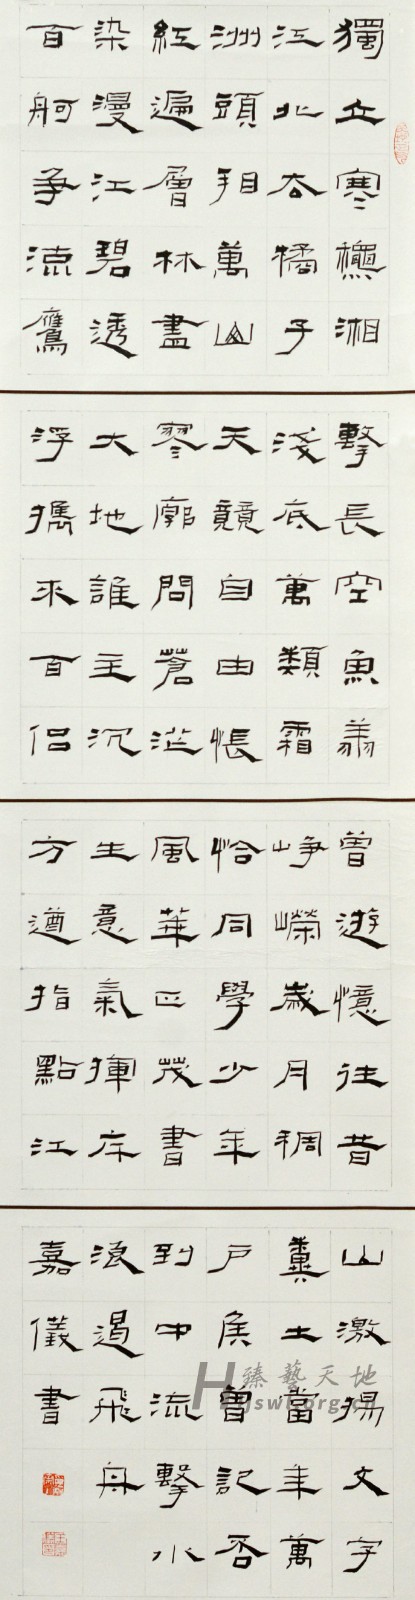 獨立寒秋湘
江北去橘子
洲頭看萬山
紅遍層林盡
染漫江碧透
百舸爭流鷹
擊長空魚翔
淺底萬類霜
天競自由悵
寥廓問蒼茫
大地誰主沉
浮攜來百侶
曾遊憶往昔
崢嶸歲月稠
恰同學少年
風華正茂書
生意氣揮斥
方遒指點江
山激揚文字
糞土當年萬
戶侯曾記否
到中流擊水
浪遏飛舟
嘉儀書
臻藝天地